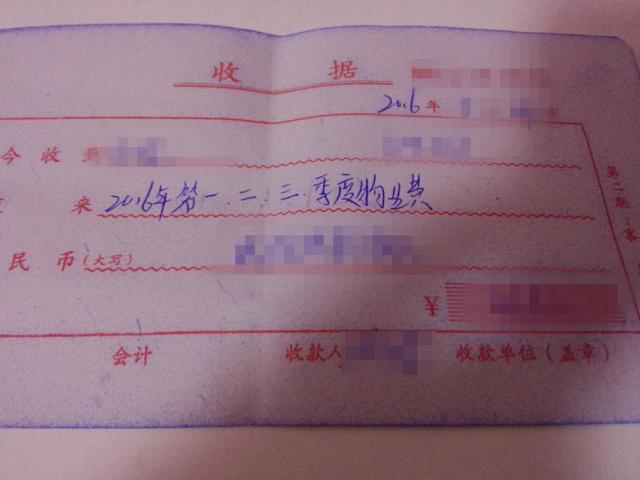 收 据
2016年
今收到
来 2016年第一.二.三.季度物业费
民币(大写)
¥
会计 收款人 收款单位(盖章)
第二联:客